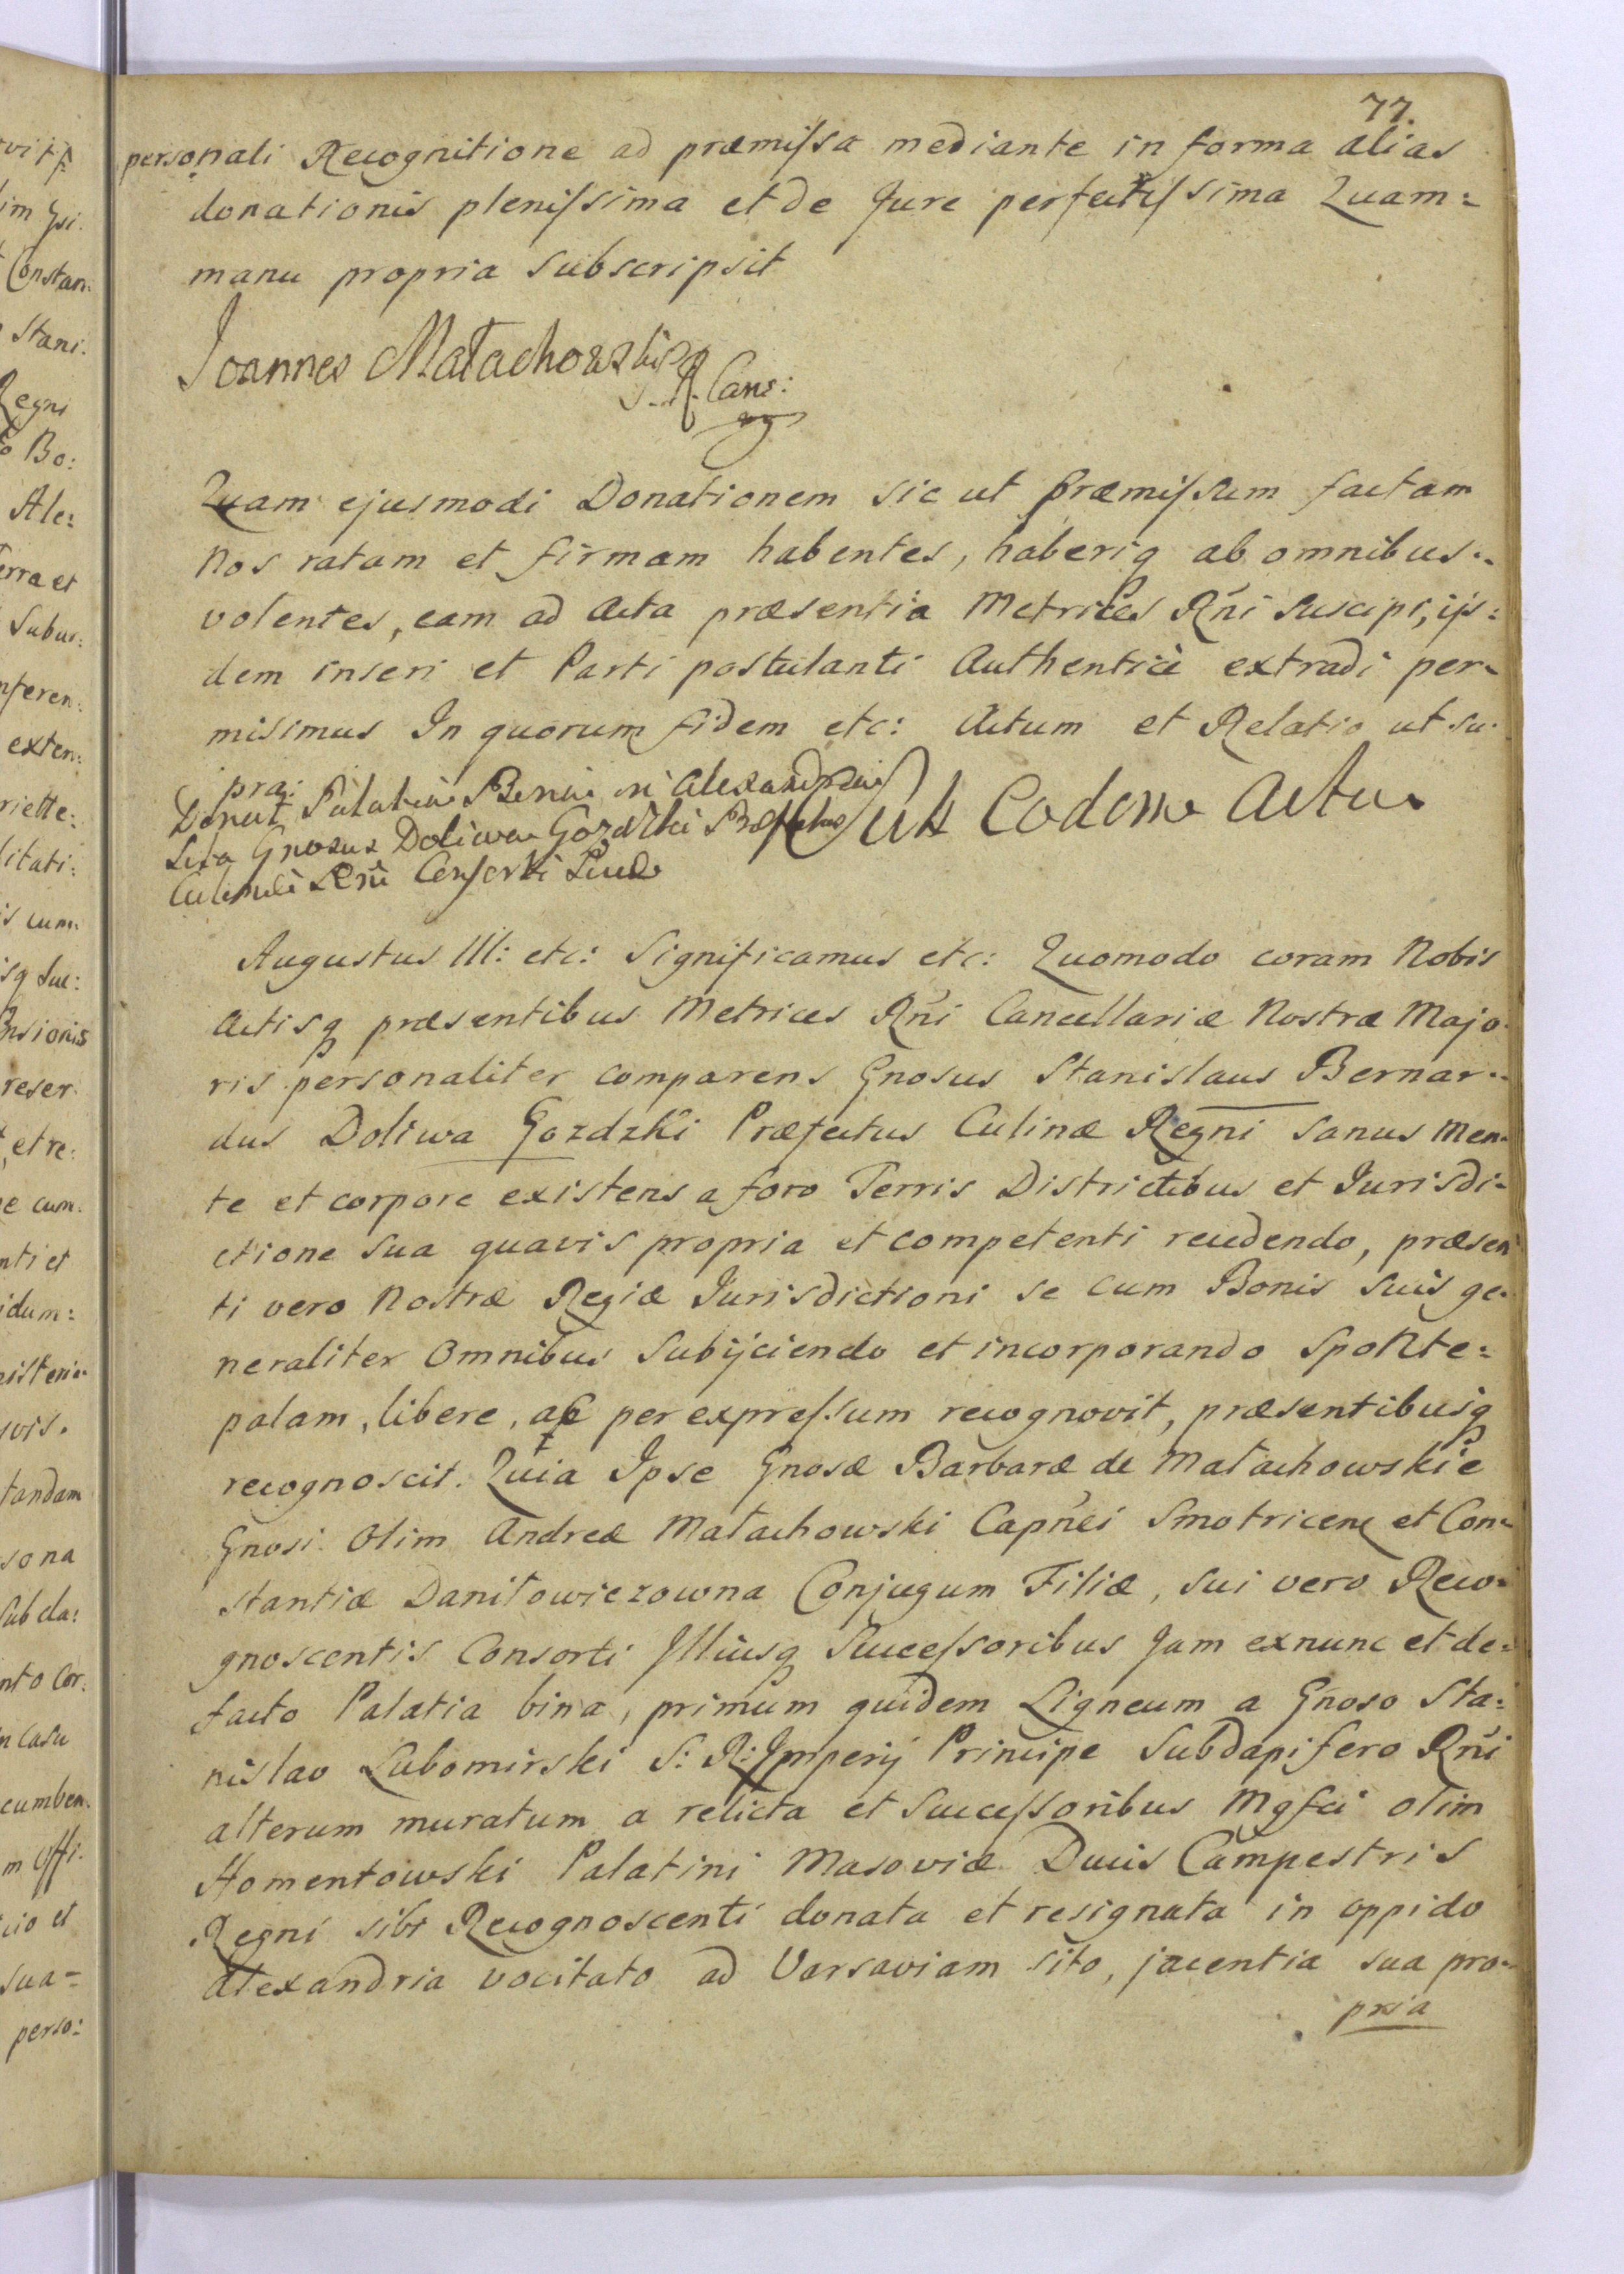 77.
personali Recognitione ad præmissa mediante in forma alias
donationis plenissima et de Jure perfectissima Quam=
manu propria subscripsit
Joannes Małachowski
S. R. Canc:
Quam ejusmodi Donationem sic ut præmissum factam
Nos ratam et firmam habentes, haberiq ab omnibus
volentes, eam ad Acta præsentia Metrices Rñi suscipi, ijs=
dem inseri et Parti postulanti Authenticè extradi per-
misimus In quorum fidem etc: Actum et Relatio ut su-
pra.
Donat Palatia Bina in Alexandria
sita Gnosus Doliwa Gozdzki Præfectus
Culinæ Rñi Consorti Suæ
Eodem Actu
Augustus III: etc: Significamus etc: Quomodo coram Nobis
Actisq præsentibus Metrices Rñi Cancellariæ Nostræ Majo-
ris personaliter comparens Gnosus Stanislaus Bernar-
dus Doliwa Gozdzki Præfectus Culinæ Regni sanus men-
te et corpore existens a foro Terris Districtibus et Jurisdi-
ctione sua quavis propria et competenti recedendo, præsen
ti vero Nostræ Regiæ Jurisdictioni se cum Bonis suis ge-
neraliter Omnibus subijciendo et incorporando sponte=
palam, libere, ac per expressum recognovit, præsentibusq
recognoscit. Quia Ipse Gnosæ Barbaræ de Małachowskie
Gnosi. Olim Andreæ Małachowski Capñei Smotricene et Con-
stantiæ Daniłowiczowna Conjugum Filiæ, sui vero Reco-
gnoscentis Consorti Illiusq Successoribus Jam exnunc et de=
facto Palatia bina, primum quidem Ligneum a Gnoso Sta=
nislao Lubomirski S: R: Imperij Principe Subdapifero Rñi
alterum muratum a relicta et Successoribus Mgfci olim
Homentowski Palatini Masoviæ Ducis Campestris
Regni sibi Recognoscenti donata et resignata in oppido
Alexandria vocitato ad Varsaviam sito, jacentia sua pro-
pria